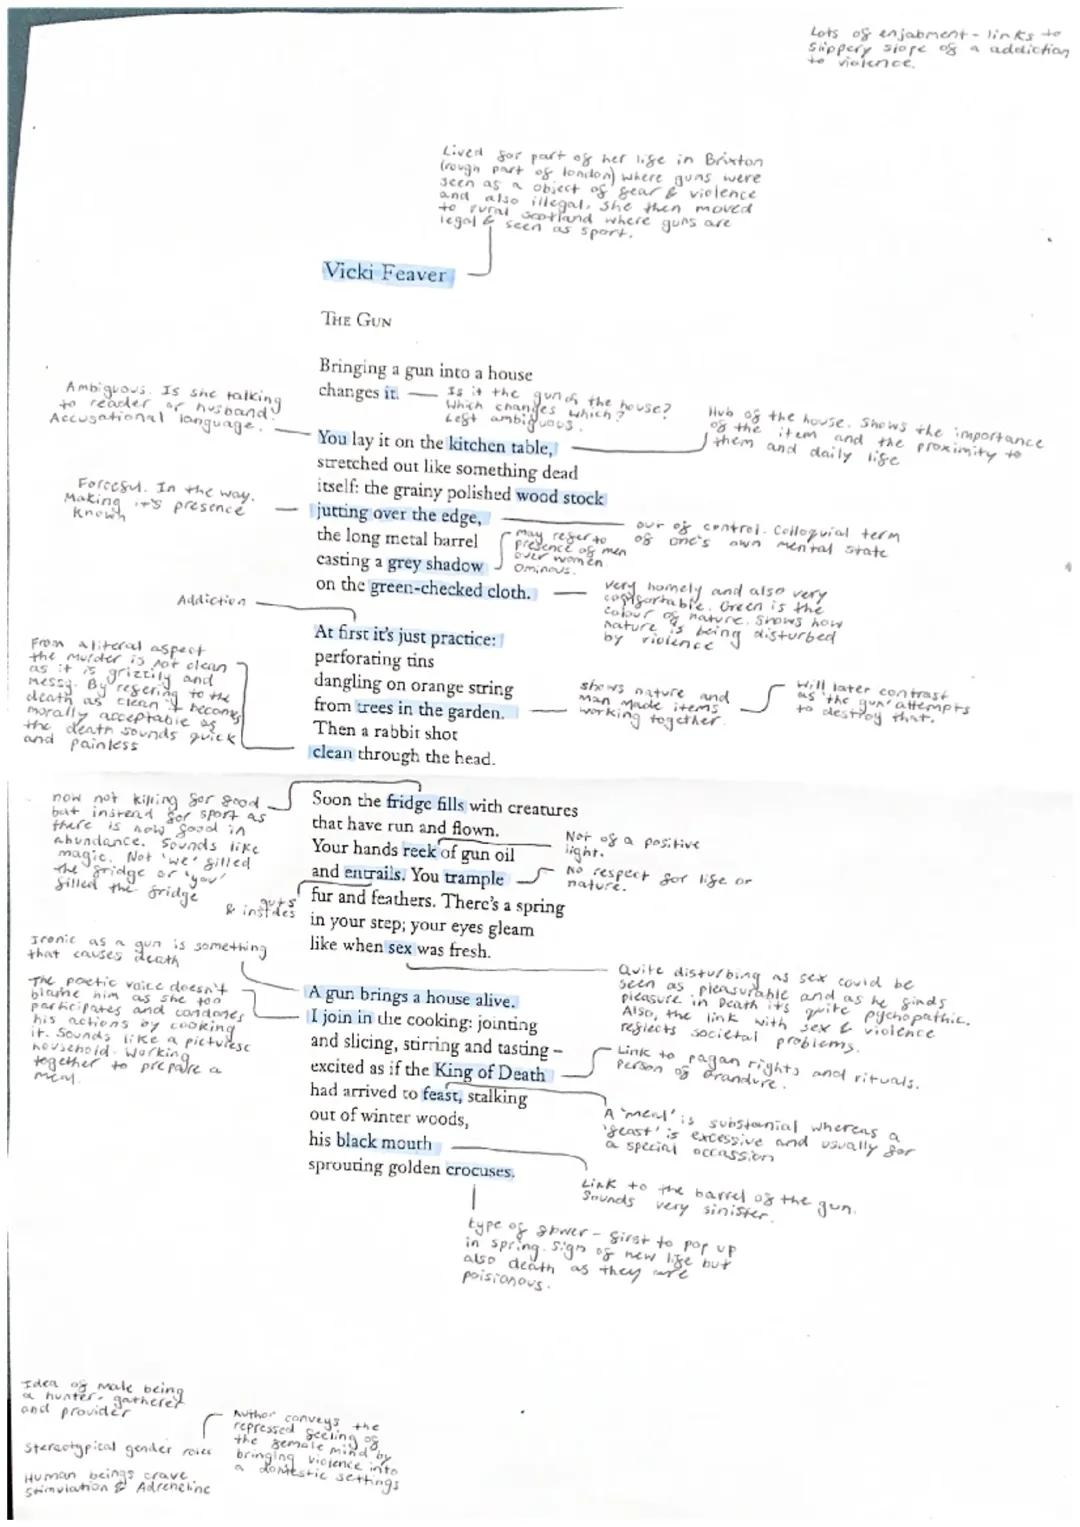 Lots of enjabment - links to
slippery slope of a addiction
to violence.
Lived for part of her life in Brixton
(rough part of london) where guns were
seen as a object of fear & violence
and also illegal. She then moved
to rural scotland where guns are
legal & seen as sport.
Vicki Feaver
THE GUN
Bringing a gun into a house
changes it.
Is it the gun of the house?
Which changes which?
Left ambiguous.
Ambiguous. Is she talking
to reader or husband?
Accusational language.
You lay it on the kitchen table,
Hub of the house. Shows the importance
of the item and the proximity to
them and daily life
stretched out like something dead
itself: the grainy polished wood stock
Forceful. In the way.
Making it's presence
known
jutting over the edge,
our of control. Colloquial term
of one's own mental state
the long metal barrel
casting a grey shadow
may refer to
presence of men
over women
ominous.
on the green-checked cloth.
very homely and also very
comfortable. Green is the
colour of nature. Shows how
nature is being disturbed
by violence
Addiction
At first it's just practice:
perforating tins
dangling on orange string
from trees in the garden.
shows nature and
man made items
working together.
Will later contrast
as 'the gun' attempts
to destroy that.
Then a rabbit shot
clean through the head.
From a literal aspect
the murder is not clean
as it is griztily and
messy. By refering to the
death as clean it becomes
morally acceptable as
the death sounds quick
and painless
Soon the fridge fills with creatures
that have run and flown.
now not killing for good
but instead for sport as
there is now good in
abundance. Sounds like
magic. Not 'we' filled
the fridge or 'you'
filled the fridge
Your hands reek of gun oil
Not of a positive
light.
and entrails. You trample
No respect for life or
nature.
guts
& insides
fur and feathers. There's a spring
in your step; your eyes gleam
like when sex was fresh.
Quite disturbing as sex could be
seen as pleasurable and as he finds
pleasure in Death its quite pychopathic.
Also, the link with sex & violence
reflects societal problems.
Ironic as a gun is something
that causes death
A gun brings a house alive.
The poetic voice doesn't
blame him as she too
participates and condones
his actions by cooking
it. Sounds like a picturesc
household. Working
together to prepare a
meal.
I join in the cooking: jointing
and slicing, stirring and tasting –
excited as if the King of Death
Link to pagan rights and rituals.
Person of grandure.
had arrived to feast, stalking
A 'meal' is substanial whereas a
'feast' is excessive and usually for
a special occassion
out of winter woods,
his black mouth
Link to the barrel of the gun.
Sounds very sinister.
sprouting golden crocuses.
type of flower - first to pop up
in spring. Sign of new life but
also death as they are
poisionous.
Idea of male being
a hunter-gatherer
and provider
Stereotypical gender roles
Human beings crave
stimulation & Adreneline
Author conveys the
repressed feeling of
the female mind by
bringing violence into
a domestic settings